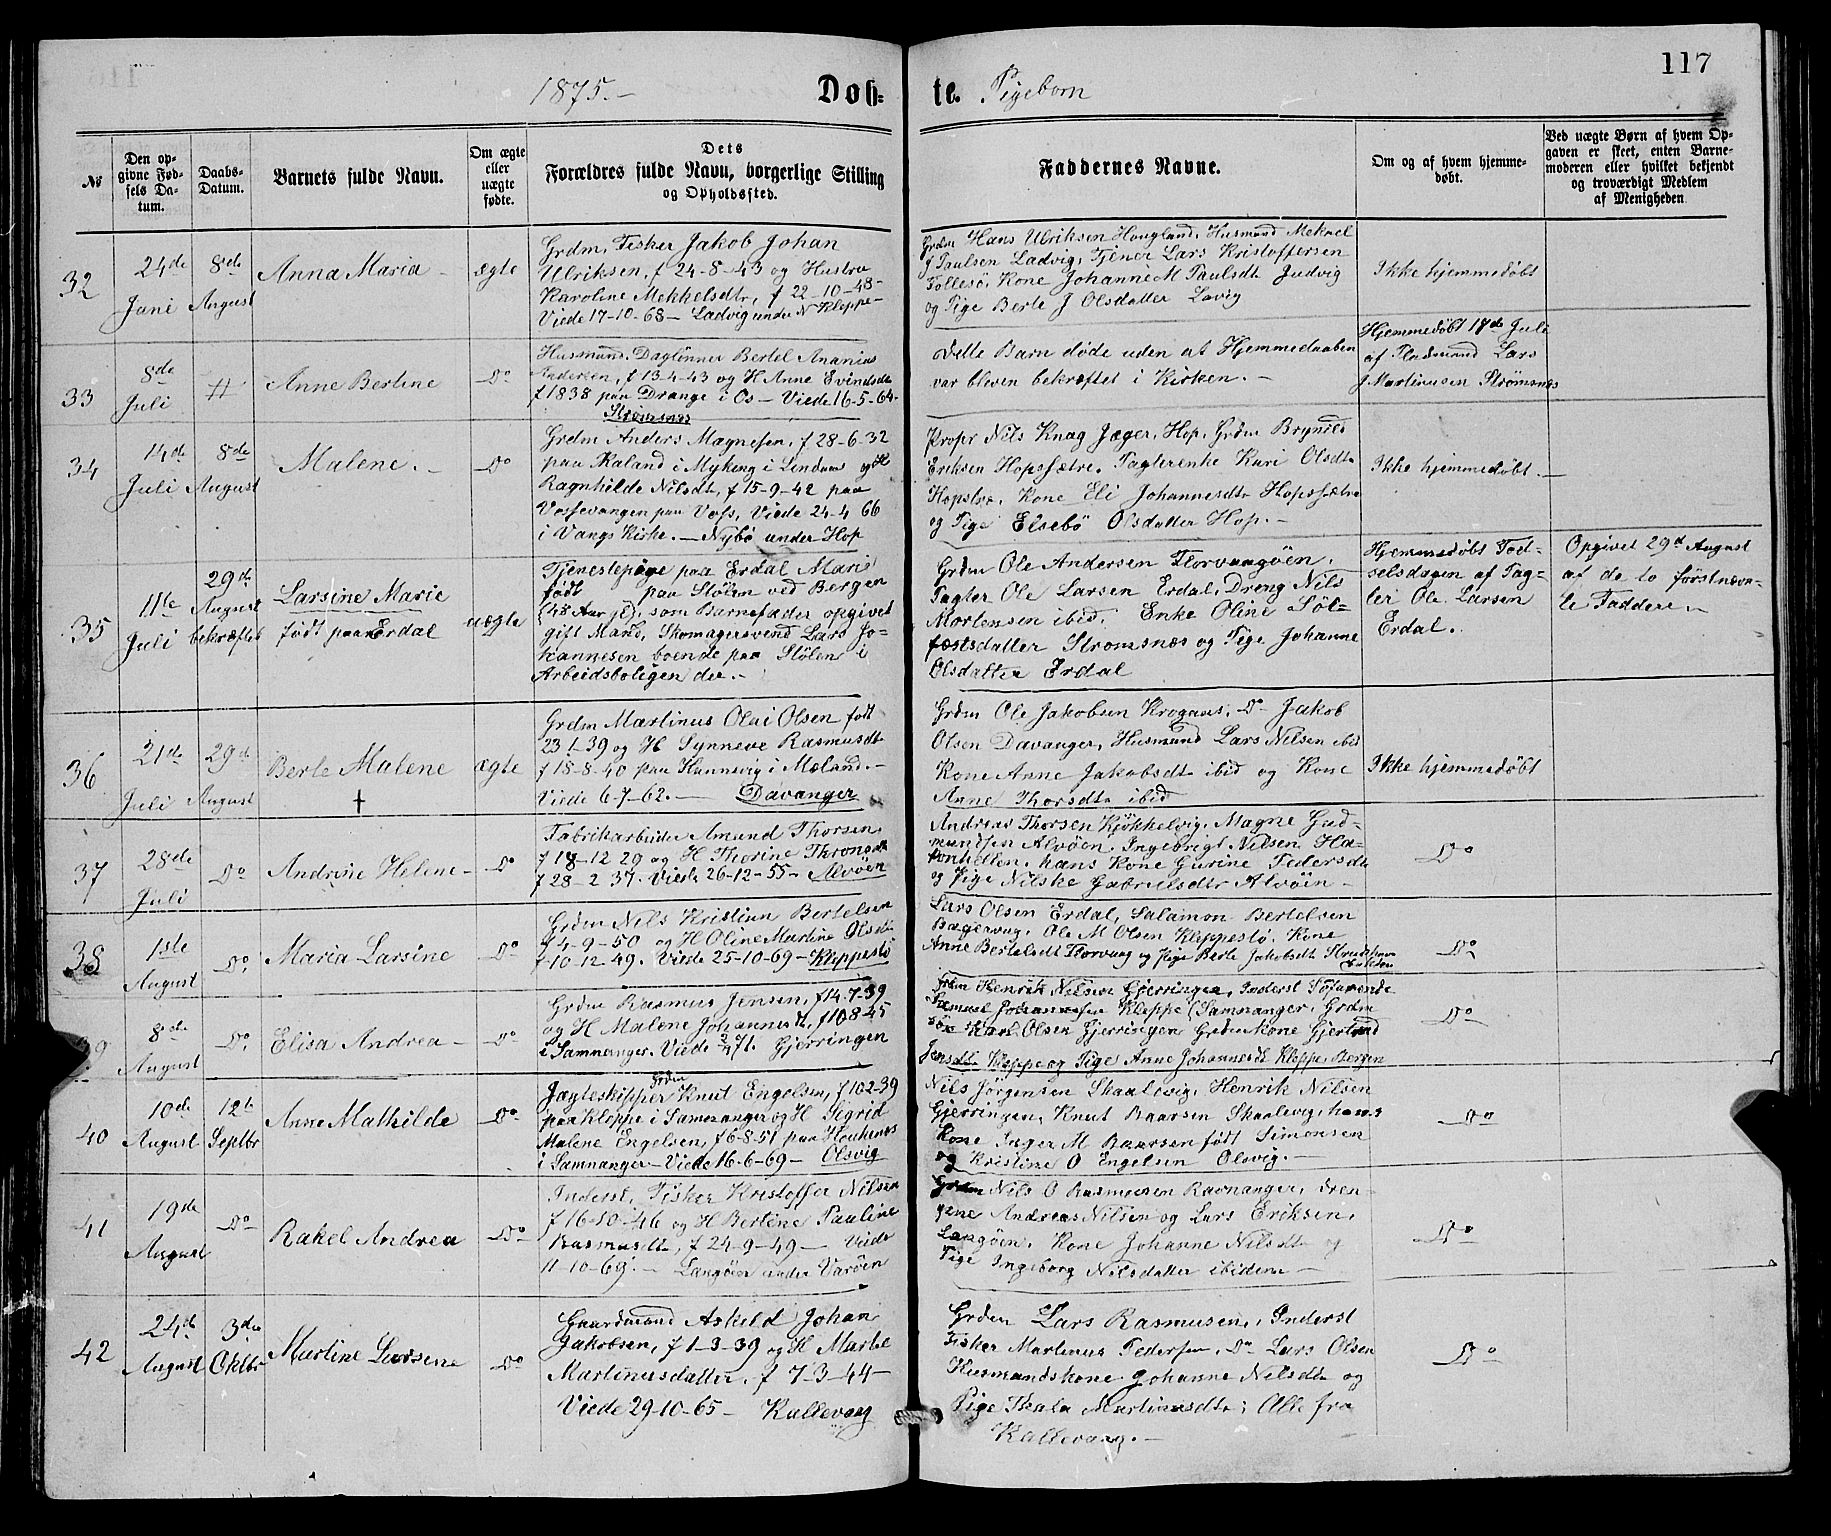 117
1875.- Døb- te. Pigebørn
No
Den op-
givne Fød-
sels Da-
tum.
Daabs-
Datum.
Barnets fulde Navn.
Om ægte
eller
uægte
fødte.
Dets
Forældres fulde Navn, borgerlige Stilling
og Opholdssted.
Faddernes Navne.
Om og af hvem hjemme-
døbt.
Ved uægte Børn af hvem Op-
gaven er skeet, enten Barne-
moderen eller hvilket bekjendt
og troværdigt Medlem
af Menigheden
32
24de
Juni
8de
August
Anna Maria
ægte
Grdm, Fisker Jakob Johan
Ulriksen, f 24-8-43 og Hustru
Karoline Mekkelsdtr, f 22-10-48-
Viede 17-10-68- Ladvig under N Kleppe-
Grdm Hans Ulriksen Hougland, Husmand Mekael
J Paulsen Ladvig, Tjener Lars Kristoffersen
Follesø, Kone Johanne M Paulsdt Ludvig
og Pige Berte J Olsdatter Lavig
Ikke hjemmedøbt
33
8de
Juli
Anne Bertine
Do
Husmand, Daglønner Bertel Ananias
Andersen, f 13-4-43 og H Anne Evindsdt
f 1838 paa Drange i Os - Viede 16-5-64-
Strømsnæs
Dette Barn døde uden at Hjemmedaaben
var bleven bekræftet i Kirken.-
Hjemmedøbt 17de Juli
af Pladsmand Lars
J Martinusen Strømsnæs
34
14de
Juli
8de
August
Malene.-
Do
Grdm Anders Magnesen, f 28-6-32
paa Kaland i Myking i Lindaas og H
Ragnhilde Nilsdt, f 15-9-42 paa
Vossevangen paa Voss, Viede 24-4 66
i Vangs Kirke.- Nybø under Hop
Propr Nils Knag Jæger, Hop, Grdm Brynild
Eriksen Hopssætre, Tagterenke Kari Olsdt
Hopstræ, Kone Eli Johannesdt Hopssætre
og Pige Elsebø Olsdatter Hop.-
Ikke hjemmedøbt.-
35
11te
Juli
29de
August
bekræftet
Larsine Marie
født paa Erdal
uægte
Tjenestepige paa Erdal Marie
født paa Stølen ved Bergen
(48 Aar gl), som Barnefader opgivet
gift Mand, Skomagersvend Lars Jo-
hannesen boende paa Stølen i
Arbeidsboligen der.-
Grdm Ole Andersen Florvaagøen,
Tagter Ole Larsen Erdal, Dreng Nils
Mortensen ibid. Enke Oline Søl-
fæstsdatter Strømsnæs og Pige Johanne
Olsdatter Erdal
Hjemmedøbt Fød-
selsdagen af Tag-
ter Ole Larsen
Erdal.
Opgivet 29d August
af de to førstnævn-
te Faddere.-
36
21de
Juli
29d
August
Berte Malene
†
ægte
Grdm Martinus Olai Olsen født
23-1-39 og H Synneve Rasmusdt
f 18-8-40 paa Hannevig i Mæland.-
Viede 6-7-62.- Davanger
Grdm Ole Jakobsen Krognæs, Do Jakob
Olsen Davanger, Husmand Lars Nilsen ibid
Kone Anne Jakobsdt ibid og Kone
Anne Thorsdt ibid
Ikke hjemmedøbt
37
28de
Juli
Do
Andrine Helene-
Do
Fabrikarbeider Amund Thorsen
f 18-12 29 og H Thorine Throngdt
f 28-2 37. Viede 26-12-55- Alvøen
Andreas Thorsen Kjøkkelvig, Magne Gud-
mundsen Alvøen, Ingebrigt Nilsen Ha-
konhellen, hans Kone Gurine Pedersdt
og Pige Nilske Gabrielsdtr Alvøen-
Do
38
1ste
August
Do
Maria Larsine
Do
Grdm Nils Kristian Bertelsen
f 4-9-50 og H Oline Martine Olsdt
f 10-12 49. Viede 25-10-69- Kleppestø
Lars Olsen Erdal, Salamon Bertelsen
Bagervaag, Ole M Olsen Kleppestø, Kone
Anne Bertelsdt Florvaag og Pige Berte Jakobsdt
Do
39
8de
August
Do
Elisa Andrea-
Do
Grdm Rasmus Jensen, f 14-7-39
og H Malene Johannesdt, f 10 8-45
i Samnanger. Viede 71. Gjerringen
Grdm Henrik Nilsen Gjerringen, Inderst Søfarende
Samuel Johannesen Kleppe (Samnanger, Grdm
søn Karl Olsen Gjerringen Grdmkone Gjertrud
Jensdt Kleppe og Pige Anne Johannesdt Kleppe, Bergen
Do
40
10de
August
12te
Septbr
Anne Mathilde
Do
Grdm
Jægteskipper Knut Engelsen, f 10 2-39
paa Kleppe i Samnanger og H Sigrid
Malene Engelsen, f 6-8-51 paa
i Samnanger- Viede 16-6-69- Olsvig
Nils Jørgensen Skaalevig, Henrik Nilsen
Gjerringen, Knut Baarsen Skaalevig, hans
Kone Inger M Baarsen født Simonsen
og Kristine O Engelsen Olsvig.-
Do
41
19de
August
Do
Rakel Andrea
Do
Inderst, Fisker Kristoffer Nilsen
f 16-10-46 og H Bertine Pauline
Rasmusdt, f 24-9-49- Viede
11-10-69.- Langøen under Varøen
Grdm Nils O Rasmussen Ravnanger, Dren-
gene Andreas Nilsen og Lars Eriksen,
Langøen, Kone Johanne Nilsdt og
Pige Ingeborg Nilsdatter ibidem-
Do
42
24de
August
3die
Oktbr
Martine Larsene
Do
Gaardmand Askild Johan
Jakobsen, f 1-3-39 og H Marte
Martinusdatter, f 7-3-44-
Viede 29-10-65- Kallevaag
Grdm Lars Rasmusen, Inderst
Fisker Martinus Pedersen, Do Lars Olsen
Husmandskone Johanne Nilsdt og
Pige Thala Martinusdtr; Alle fra
Kallevaag.-
Do